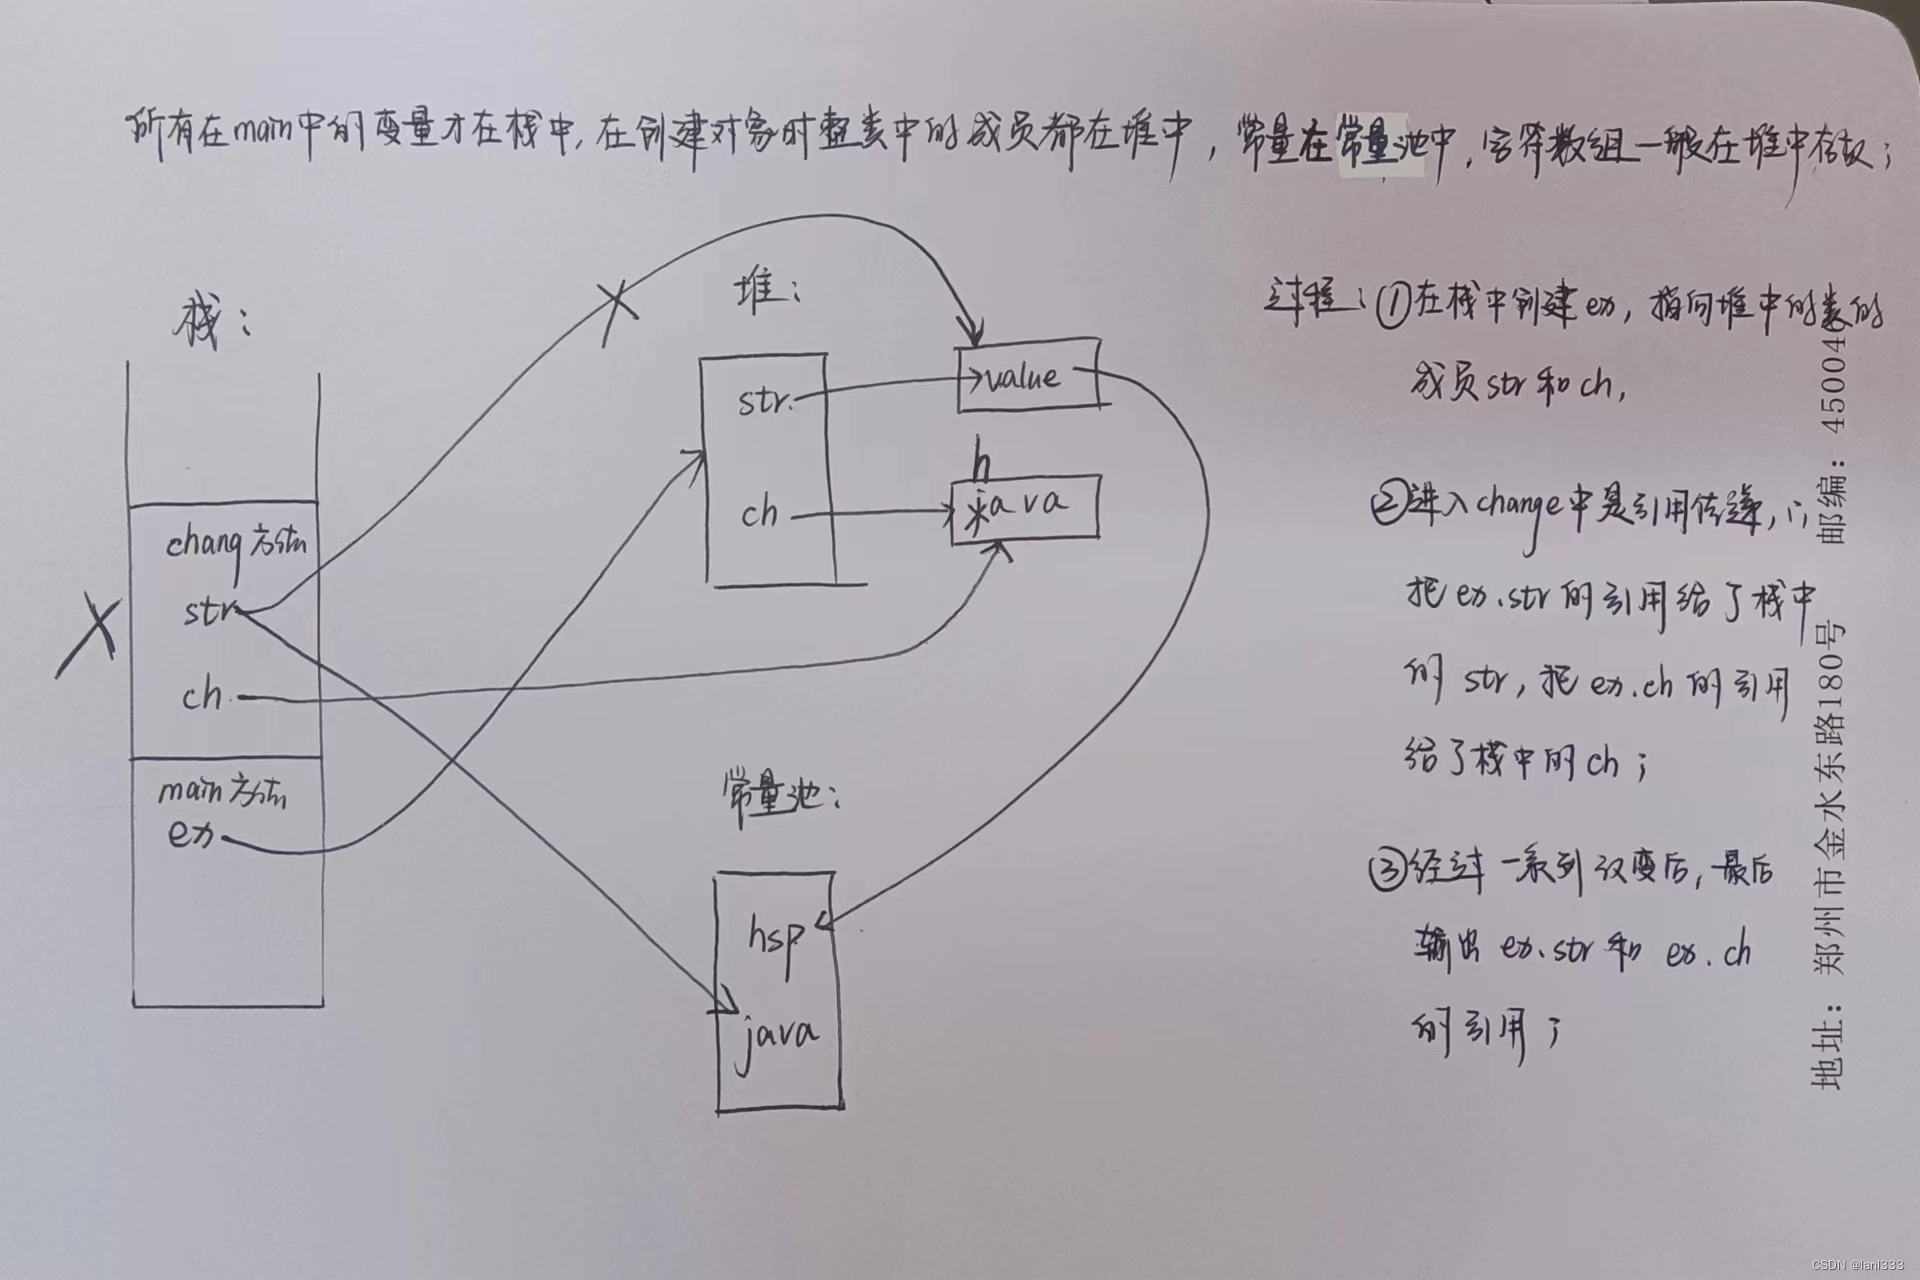 所有在main中的变量才在栈中,在创建对象时整类中的成员都在堆中,常量在常量池中,字符数组一般在堆中存放;
栈:
chang方法
str
ch
main方法
ex
堆:
str
ch
value
h
java
常量池:
hsp
java
过程:①在栈中创建ex,指向堆中的类的
成员str和ch,
②进入change中是引用传递,
把ex.str的引用给了栈中
的str,把ex.ch的引用
给了栈中的ch;
③经过一系列改变后,最后
输出ex.str和ex.ch
的引用;
地址:郑州市金水东路180号 邮编:45004
CSDN @lanl333